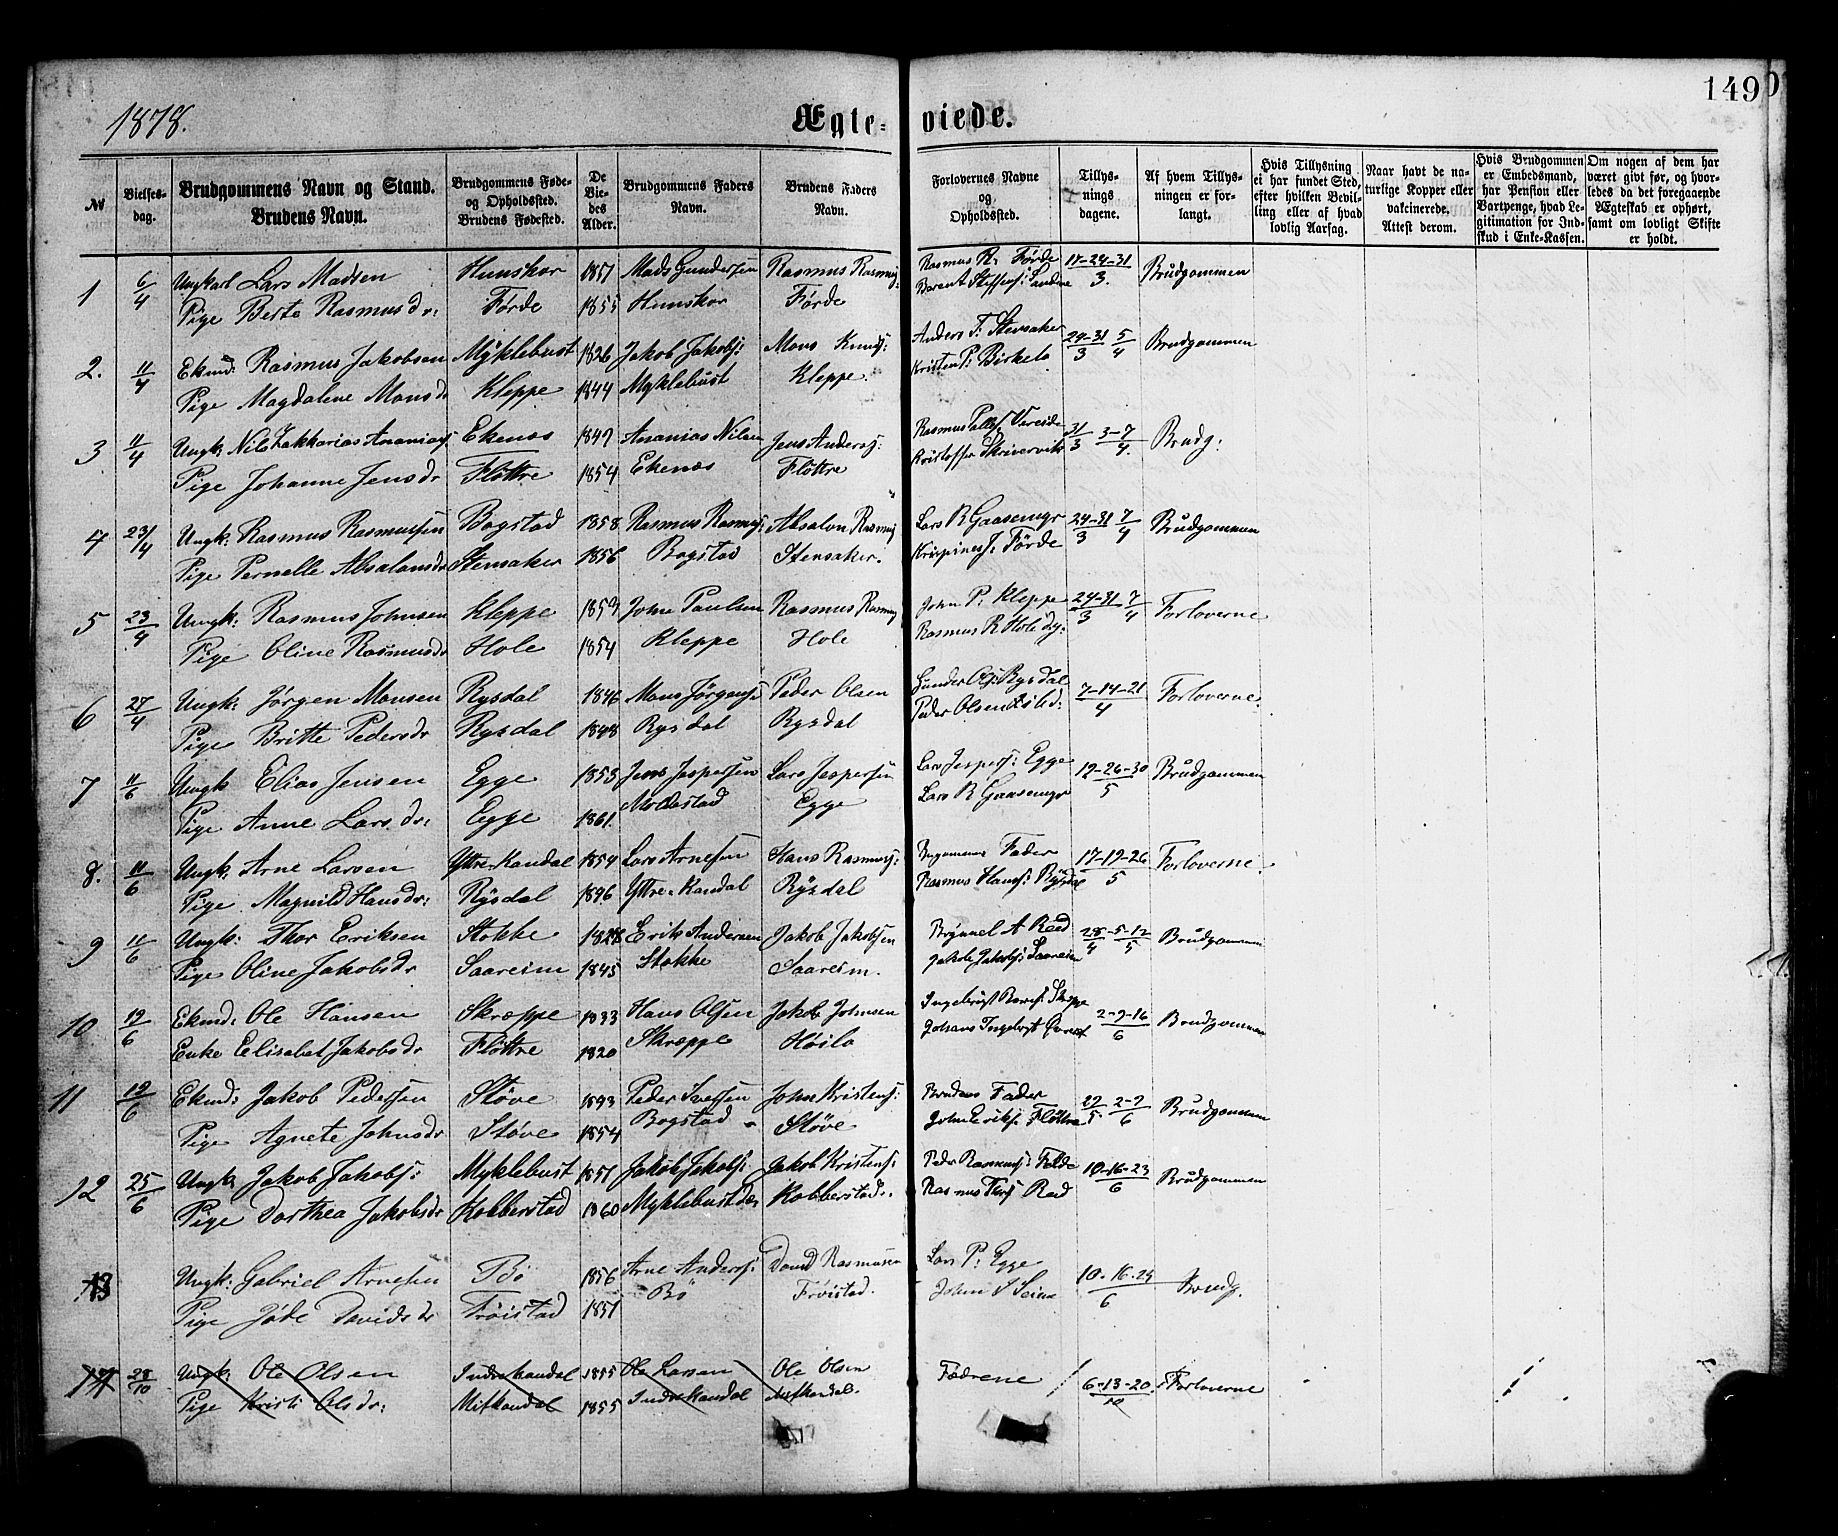 149
1878.
Ægte-viede.
№
Vielses-dag.
Brudgommens Navn og Stand.
Brudens Navn.
Brudgommens Føde- og Opholdssted.
Brudens Fødested.
De Viedes Alder.
Brudgommens Faders Navn.
Brudens Faders Navn.
Forlovernes Navne og Opholdssted.
Tillysningsdagene.
Af hvem Tillysningen er forlangt.
Hvis Tillysning ei har fundet Sted, efter hvilken Bevilling eller af hvad lovlig Aarsag.
Naar havt de naturlige Kopper eller vakcinerede. Attest derom.
Hvis Brudgommen er Embedsmand, har Pension eller Vartpenge, hvad Legitimation for Indskud i Enke-Kassen.
Om nogen af dem har været givt før, og hvorledes da det foregaaende Ægteskab er ophørt, samt om lovligt Skifte er holdt.
1 6/4 Ungkarl Lars Madsen Hunskor 1851 Mads Gundersen Rasmus Rasmus: Rasmus R. Førde 17-24-31/3. Brudgommen
Pige Berte Rasmusdr: Førde 1855 Hunskor Førde Berent Steffens: Sandene
2. 11/4 Ekmd: Rasmus Jakobsen Myklebust 1826 Jakob Jakobs: Mons Knuds: Anders T. Stensaker 24-31/3 5/4 Brudgommen
Pige Magdalene Monsdr Kleppe 1844 Myklebust Kleppe. Kristen P: Birkelo
3 11/4 Ungk: Nils Zakkarias Ananias: Ekenes 1847 Ananias Nilsen Jens Anders: Rasmus Vereide 31/3 3-7/4. Brudg:
Pige Johanne Jensdr Flöttre 1854 Ekenes Flöttre Kristoffer Skrivervik
4 23/4 Ungk: Rasmus Rasmussen Bogstad 1858 Rasmus Rasmus: Absalon Rasmus Lars R Gaasemyr 24-31/3 7/4 Brudgommen
Pige Pernelle Absalonsdr Stensaker 1856 Bogstad Stensaker. Førde
5 23/4 Ungk: Rasmus Johnsen Kleppe 1853 John Paulsen Rasmus Rasmus John P: Kleppe 24-31/3 7/4 Forloverne
Pige Oline Rasmusdr Hole 1854 Kleppe Hole Rasmus R Hole
6 27/4 Ungk: Jørgen Monsen Rygsdal 1846 Mons Jørgens: Peder Olsen Gunder Ols: Rysdal 7-14-21/4 Forloverne.
Pige Britte Pedersdr Rysdal 1848 Rysdal Rysdal Peder Olsen
7 11/6 Ungk Elias Jensen Egge 1853 Jens Jespersen Lars Jespersen Lars Jespers: Egge 19-26-30/5 Brudgommen
Pige Anne Larsdr: Egge 1861. Moldestad Egge Lars R Gaasemyr
8. 11/6 Ungk: Arne Larsen Yttre-Kandal 1854 Lars Arnesen Hans Rasmus: Fader 17-19-26/5 Forloverne
Pige Magnild Hansdr: Rÿsdal 1896 Yttre-Kandal Rÿsdal Rasmus Hans: Rÿsdal
9 11/6 Ungk: Thor Eriksen Stokke Erik Andersen Jakob Jakobsen A Reed 28/4-5-12/5 Brudgommen
Pige Oline Jakobsdr Saareim 1845 Stokke Saareim. Jakob Jakobs: Saareim
10 12/6 Ekmd: Ole Hansen Skræppe 1833 Hans Olsen Jakob Johnsen Ingebrigt Skreppe 2-9-16/6 Brudgommen
Enke Elisabet Jakobsdr Flöttre 1820 Skræppe Høilo Johans Ingebrigt
11 12/6 Ekmd: Jakob Pedersen Støve 1893 Peder Iversen John Kristens: Brudens Fader 29/5 2-9/6 Brudgommen
Pige Agnete Johnsdr Støve 1854 Bogstad Støve John Eriks: Flöttre
12 25/6 Ungk Jakob Jakobs: Myklebust 1851 Jakob Jakobs: Jakob Kristens: Peder Rasmus: Felde 10-16-23/6 Brudgommen
Pige Dorthea Jakobsdr Kobberstad 1860 Myklebust Kobberstad. Rasmus Red
13 Ungk: Gabriel Arnesen Bö 1856 Arne Anders: David Rasmusen Lars P: Egge 10-16-24/6 Brudg.
Pige Jöde Davidsdr Fröistad 1851 Bö Fröistad. John
14 28/10 Ungk: Ole Olsen Indrekandal 1855 Ole Larsen Ole Olsen Fædrene 6-13-20/10 Forloverne
Pige Kristi Olsdr: Mitkandal 1855 Indrekandal Mitkandal